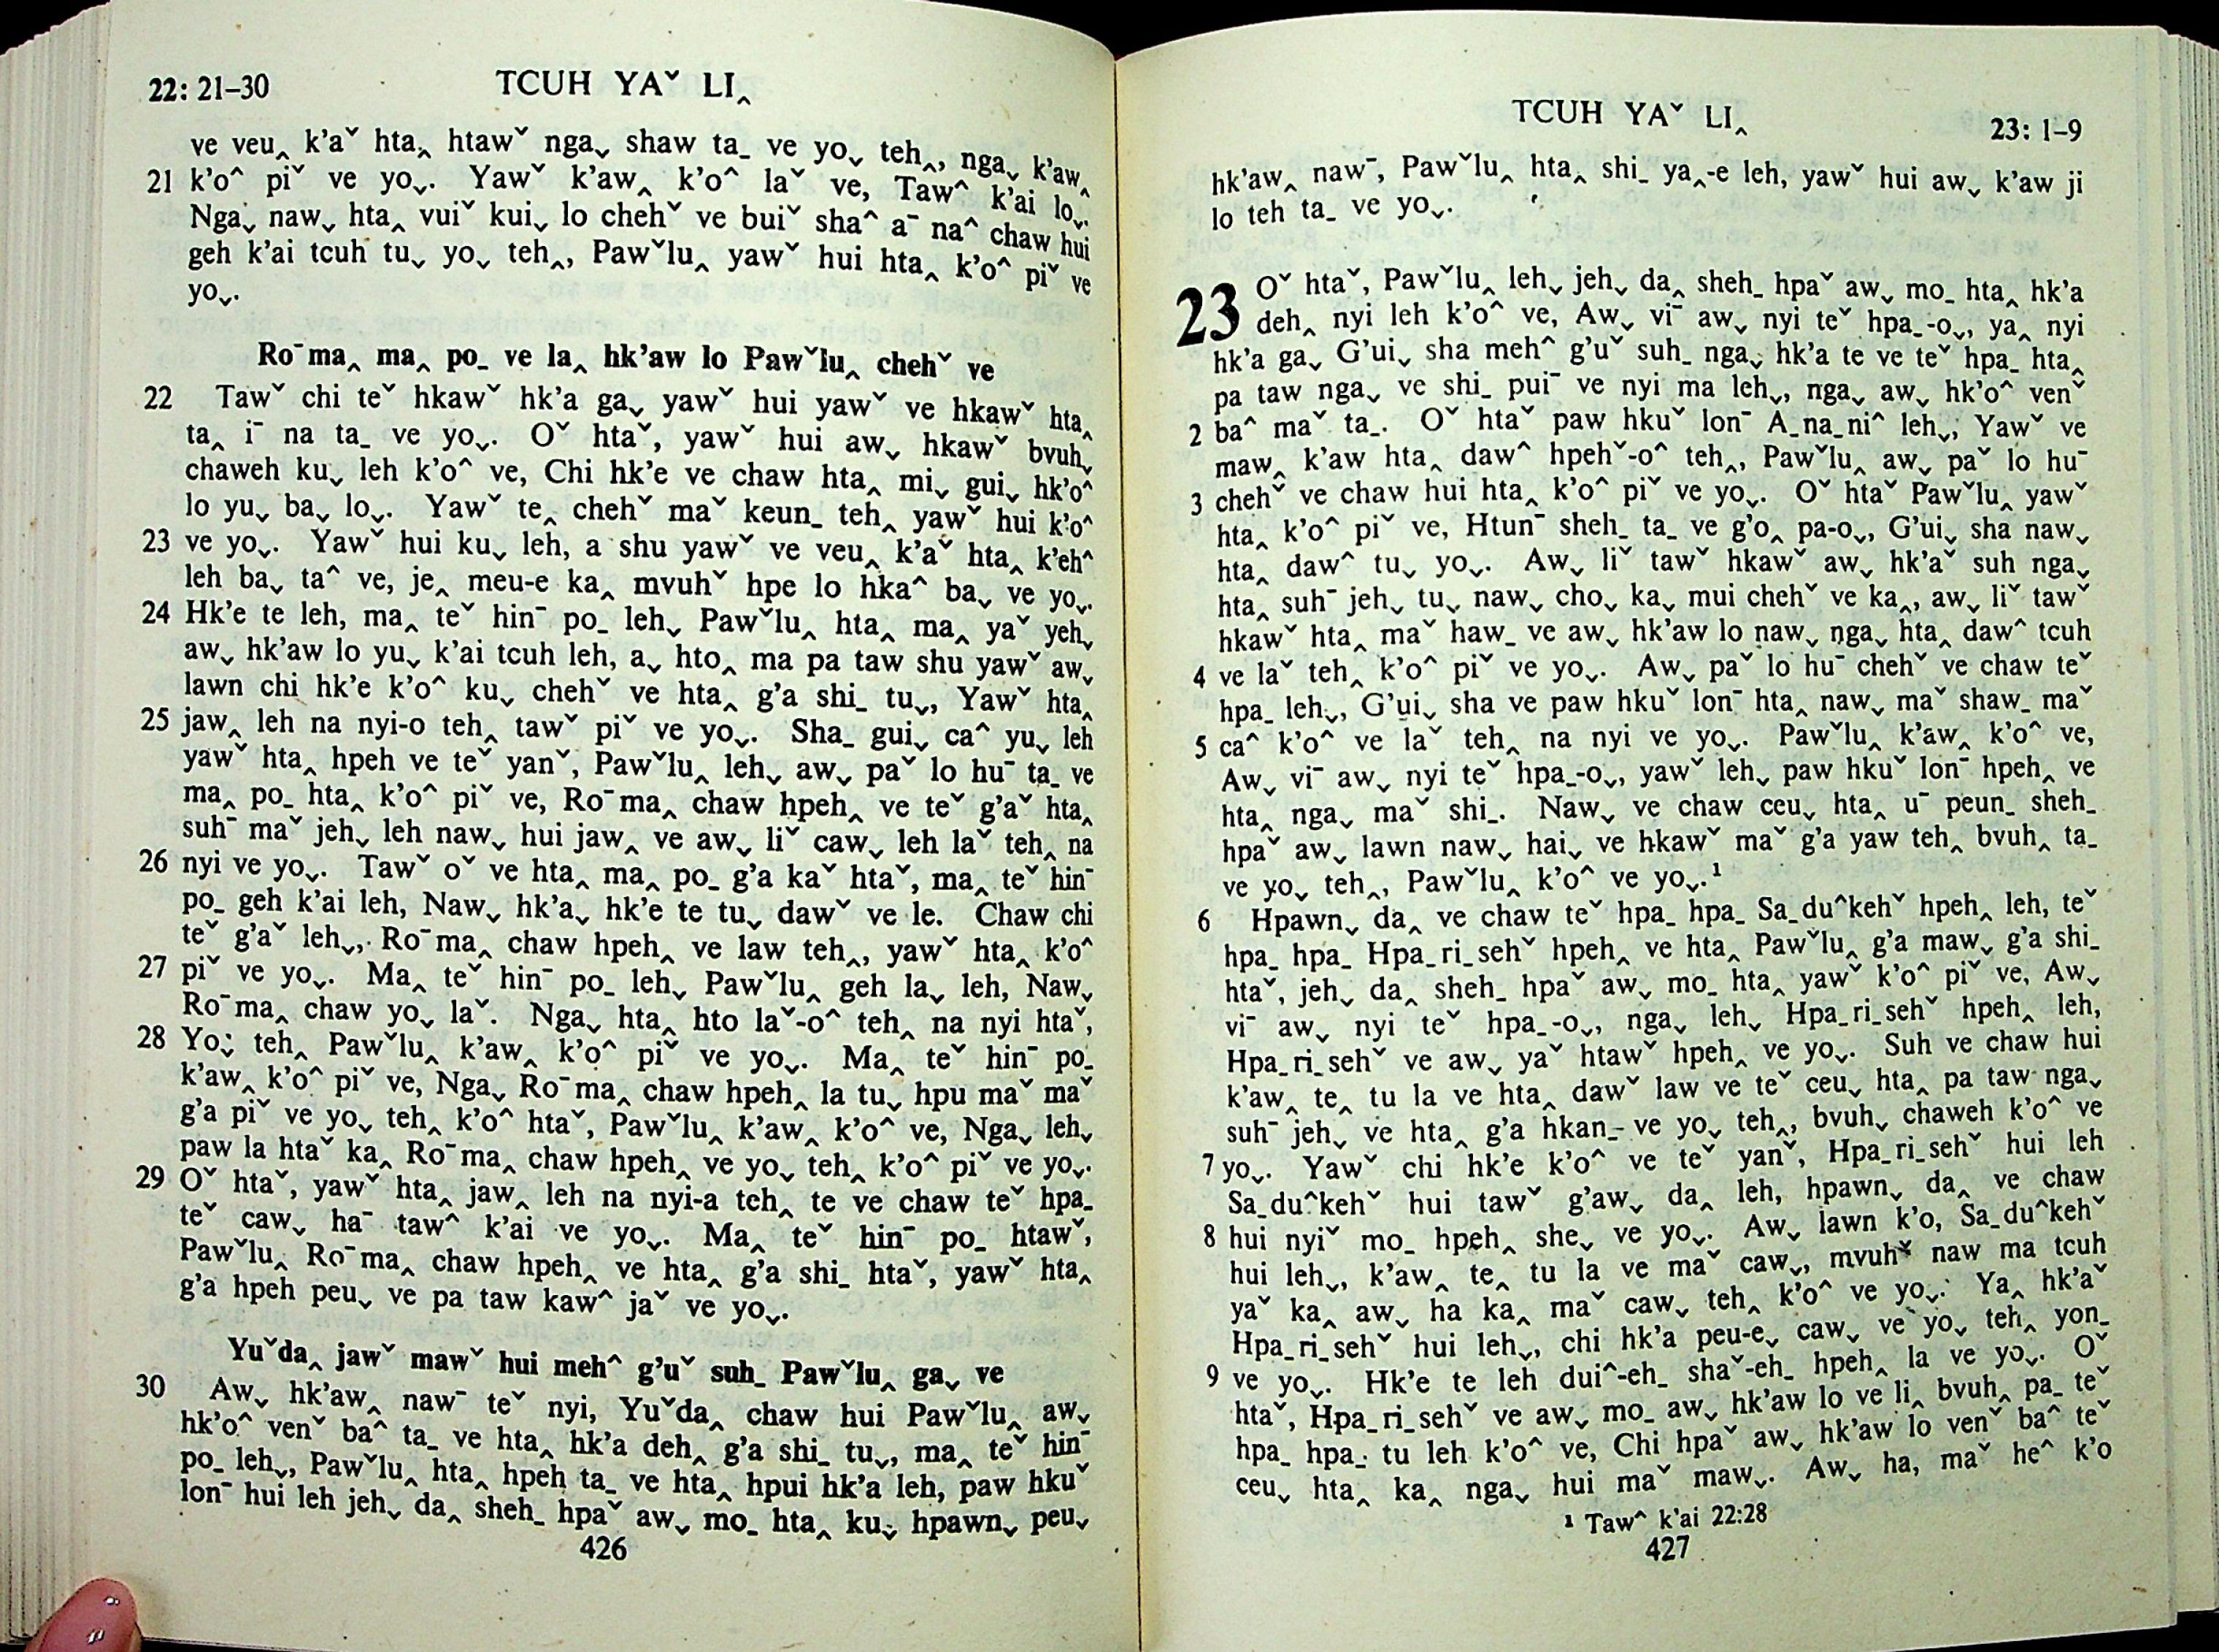 22: 21–30
TCUH YAˇ LI‸
ve veu‸ k'aˇ hta‸ htawˇ ngaˬ shaw ta_ ve yoˬ teh‸, ngaˬ k'aw‸
21 k'o^ piˇ ve yoˬ. Yawˇ k'aw‸ k'o^ laˇ ve, Taw^ k'ai loˬ.
Ngaˬ nawˬ hta‸ vuiˇ kuiˬ lo chehˇ ve buiˇ sha^ aˉ na^ chaw hui
geh k'ai tcuh tuˬ yoˬ teh‸, Pawˇlu‸ yawˇ hui hta‸ k'o^ piˇ ve
yoˬ.
Roˉma‸ ma‸ po_ ve la‸ hk'aw lo Pawˇlu‸ chehˇ ve
22 Tawˇ chi teˇ hkawˇ hk'a gaˬ yawˇ hui yawˇ ve hkawˇ hta‸
ta‸ iˉ na ta_ ve yoˬ. Oˇ htaˇ, yawˇ hui awˬ hkawˇ bvuhˬ
chaweh kuˬ leh k'o^ ve, Chi hk'e ve chaw hta‸ miˬ guiˬ hk'o^
lo yuˬ baˬ loˬ. Yawˇ te‸ chehˇ maˇ keun_ teh‸ yawˇ hui k'o^
23 ve yoˬ. Yawˇ hui kuˬ leh, a shu yawˇ ve veu‸ k'aˇ hta‸ k'eh^
leh baˬ ta^ ve, je‸ meu-e ka‸ mvuhˇ hpe lo hka^ baˬ ve yoˬ.
24 Hk'e te leh, ma‸ teˇ hinˉ po_ lehˬ Pawˇlu‸ hta‸ ma‸ yaˇ yehˬ
awˬ hk'aw lo yuˬ k'ai tcuh leh, aˬ hto‸ ma pa taw shu yawˇ awˬ
lawn chi hk'e k'o^ kuˬ chehˇ ve hta‸ g'a shi_ tuˬ, Yawˇ hta‸
25 jaw‸ leh na nyi-o teh‸ tawˇ piˇ ve yoˬ. Sha_ guiˬ ca^ yuˬ leh
yawˇ hta‸ hpeh ve teˇ yanˇ, Pawˇlu‸ lehˬ awˬ paˇ lo huˉ ta_ ve
ma‸ po_ hta‸ k'o^ piˇ ve, Roˉma‸ chaw hpeh‸ ve teˇ g'aˇ hta‸
suhˉ maˇ jehˬ leh nawˬ hui jaw‸ ve awˬ liˇ cawˬ leh laˇ teh‸ na
26 nyi ve yoˬ. Tawˇ oˇ ve hta‸ ma‸ po_ g'a kaˇ htaˇ, ma‸ teˇ hinˉ
po_ geh k'ai leh, Nawˬ hk'aˬ hk'e te tuˬ dawˇ ve le. Chaw chi
teˇ g'aˇ lehˬ, Roˉma‸ chaw hpeh‸ ve law teh‸, yawˇ hta‸ k'o^
27 piˇ ve yoˬ. Ma‸ teˇ hinˉ po_ lehˬ Pawˇlu‸ geh laˬ leh, Nawˬ
Roˉma‸ chaw yoˬ laˇ. Ngaˬ hta‸ hto laˇ-o^ teh‸ na nyi htaˇ,
28 Yoˬ teh‸ Pawˇlu‸ k'aw‸ k'o^ piˇ ve yoˬ. Ma‸ teˇ hinˉ po_
k'aw‸ k'o^ piˇ ve, Ngaˬ Roˉma‸ chaw hpeh‸ la tuˬ hpu maˇ maˇ
g'a piˇ ve yoˬ teh‸ k'o^ htaˇ, Pawˇlu‸ k'aw‸ k'o^ ve, Ngaˬ lehˬ
paw la htaˇ ka‸ Roˉma‸ chaw hpeh‸ ve yoˬ teh‸ k'o^ piˇ ve yoˬ.
29 Oˇ htaˇ, yawˇ hta‸ jaw‸ leh na nyi-a teh‸ te ve chaw teˇ hpa_
teˇ cawˬ haˉ taw^ k'ai ve yoˬ. Ma‸ teˇ hinˉ po_ htawˇ,
Pawˇlu‸ Roˉma‸ chaw hpeh‸ ve hta‸ g'a shi_ htaˇ, yawˇ hta‸
g'a hpeh peuˬ ve pa taw kaw^ jaˇ ve yoˬ.
Yuˇda‸ jawˇ mawˇ hui meh^ g'uˇ suh_ Pawˇlu‸ gaˬ ve
30 Awˬ hk'aw‸ nawˉ teˇ nyi, Yuˇda‸ chaw hui Pawˇlu‸ awˬ
hk'o^ venˇ ba^ ta_ ve hta‸ hk'a deh‸ g'a shi_ tuˬ, ma‸ teˇ hinˉ
po_ lehˬ, Pawˇlu‸ hta‸ hpeh ta_ ve hta‸ hpui hk'a leh, paw hkuˇ
lonˉ hui leh jehˬ da‸ sheh_ hpaˇ awˬ mo_ hta‸ kuˬ hpawnˬ peuˬ
426
TCUH YAˇ LI‸
23: 1–9
hk'aw‸ nawˉ, Pawˇlu‸ hta‸ shi_ ya‸-e leh, yawˇ hui awˬ k'aw ji
lo teh ta_ ve yoˬ.
23 Oˇ htaˇ, Pawˇlu‸ lehˬ jehˬ da‸ sheh_ hpaˇ awˬ mo_ hta‸ hk'a
deh‸ nyi leh k'o^ ve, Awˬ viˉ awˬ nyi teˇ hpa_-oˬ, ya‸ nyi
hk'a gaˬ G'uiˬ sha meh^ g'uˇ suh_ ngaˬ hk'a te ve teˇ hpa_ hta‸
pa taw ngaˬ ve shi_ puiˉ ve nyi ma lehˬ, ngaˬ awˬ hk'o^ venˇ
2 ba^ maˇ ta_. Oˇ htaˇ paw hkuˇ lonˉ A_na_ni^ lehˬ, Yawˇ ve
maw‸ k'aw hta‸ daw^ hpehˇ-o^ teh‸, Pawˇlu‸ awˬ paˇ lo huˉ
3 chehˇ ve chaw hui hta‸ k'o^ piˇ ve yoˬ. Oˇ htaˇ Pawˇlu‸ yawˇ
hta‸ k'o^ piˇ ve, Htunˉ sheh_ ta_ ve g'o‸ pa-oˬ, G'uiˬ sha nawˬ
hta‸ daw^ tuˬ yoˬ. Awˬ liˇ tawˇ hkawˇ awˬ hk'aˇ suh ngaˬ
hta‸ suhˉ jehˬ tuˬ nawˬ choˬ kaˬ mui chehˇ ve ka‸, awˬ liˇ tawˇ
hkawˇ hta‸ maˇ haw_ ve awˬ hk'aw lo nawˬ ngaˬ hta‸ daw^ tcuh
4 ve laˇ teh‸ k'o^ piˇ ve yoˬ. Awˬ paˇ lo huˉ chehˇ ve chaw teˇ
hpa_ lehˬ, G'uiˬ sha ve paw hkuˇ lonˉ hta‸ nawˬ maˇ shaw_ maˇ
5 ca^ k'o^ ve laˇ teh‸ na nyi ve yoˬ. Pawˇlu‸ k'aw‸ k'o^ ve,
Awˬ viˉ awˬ nyi teˇ hpa_-oˬ, yawˇ lehˬ paw hkuˇ lonˉ hpeh‸ ve
hta‸ ngaˬ maˇ shi_. Nawˬ ve chaw ceuˬ hta‸ uˉ peun_ sheh_
hpaˇ awˬ lawn nawˬ haiˬ ve hkawˇ maˇ g'a yaw teh‸ bvuh‸ ta_
ve yoˬ teh‸, Pawˇlu‸ k'o^ ve yoˬ.¹
6 Hpawnˬ da‸ ve chaw teˇ hpa_ hpa_ Sa_du^kehˇ hpeh‸ leh, teˇ
hpa_ hpa_ Hpa_ri_sehˇ hpeh‸ ve hta‸ Pawˇlu‸ g'a mawˬ g'a shi_
htaˇ, jehˬ da‸ sheh_ hpaˇ awˬ mo_ hta‸ yawˇ k'o^ piˇ ve, Awˬ
viˉ awˬ nyi teˇ hpa_-oˬ, ngaˬ lehˬ Hpa_ri_sehˇ hpeh‸ leh,
Hpa_ri_sehˇ ve awˬ yaˇ htawˇ hpeh‸ ve yoˬ. Suh ve chaw hui
k'aw‸ te‸ tu la ve hta‸ dawˇ law ve teˇ ceuˬ hta‸ pa taw ngaˬ
suhˉ jehˬ ve hta‸ g'a hkan_ ve yoˬ teh‸, bvuhˬ chaweh k'o^ ve
7 yoˬ. Yawˇ chi hk'e k'o^ ve teˇ yanˇ, Hpa_ri_sehˇ hui leh
Sa_du^kehˇ hui tawˇ g'awˬ da‸ leh, hpawnˬ da‸ ve chaw
8 hui nyiˇ mo_ hpeh‸ sheˬ ve yoˬ. Awˬ lawn k'o, Sa_du^kehˇ
hui lehˬ, k'aw‸ te‸ tu la ve maˇ cawˬ, mvuhˇ naw ma tcuh
yaˇ ka‸ awˬ ha ka‸ maˇ cawˬ teh‸ k'o^ ve yoˬ. Ya‸ hk'aˇ
Hpa_ri_sehˇ hui lehˬ, chi hk'a peu-eˬ cawˬ ve yoˬ teh‸ yon_
9 ve yoˬ. Hk'e te leh dui^-eh_ shaˇ-eh_ hpeh‸ la ve yoˬ. Oˇ
htaˇ, Hpa_ri_sehˇ ve awˬ mo_ awˬ hk'aw lo ve li‸ bvuh‸ pa_ teˇ
hpa_ hpa_ tu leh k'o^ ve, Chi hpaˇ awˬ hk'aw lo venˇ ba^ teˇ
ceuˬ hta‸ ka‸ ngaˬ hui maˇ mawˬ. Awˬ ha, maˇ he^ k'o
¹ Taw^ k'ai 22:28
427